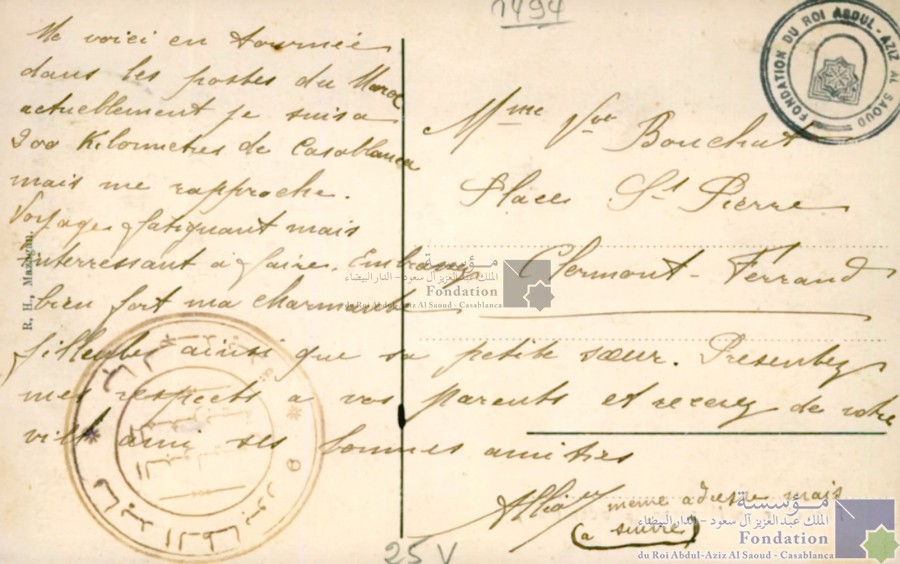 1494
Me voici en tournée
dans les postes du Maroc
actuellement je suis a
200 Kilometres de Casablanca
mais me rapproche.
Voyage fatiguant mais
interressant a faire. Embrassez
bien fort ma charmante
filleule ainsi que sa petite sœur. Presentez
mes respects a vos parents et recevez de votre
vieil ami ses bonnes amitiés
meme adresse mais
a suivre
Mme Vve Bouchut
Place St Pierre
Clermont-Ferrand
R. H., Mazagan.
25 V
FONDATION DU ROI ABDUL-AZIZ AL SAOUD
مؤسسة
الملك عبد العزيز آل سعود - الدار البيضاء
Fondation
du Roi Abdul-Aziz Al Saoud - Casablanca
مؤسسة
الملك عبد العزيز آل سعود - الدار البيضاء
Fondation
du Roi Abdul-Aziz Al Saoud - Casablanca